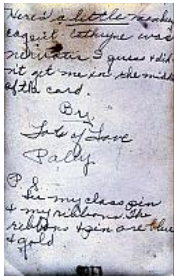 Here's a little monkey
Cathryne was
nervous I guess & did
n't get me in the mid
of the card.
By.
Lots of Love
Polly.
P. S.
See my class pin
& my ribbons. The
ribbons & pin are blue
& gold